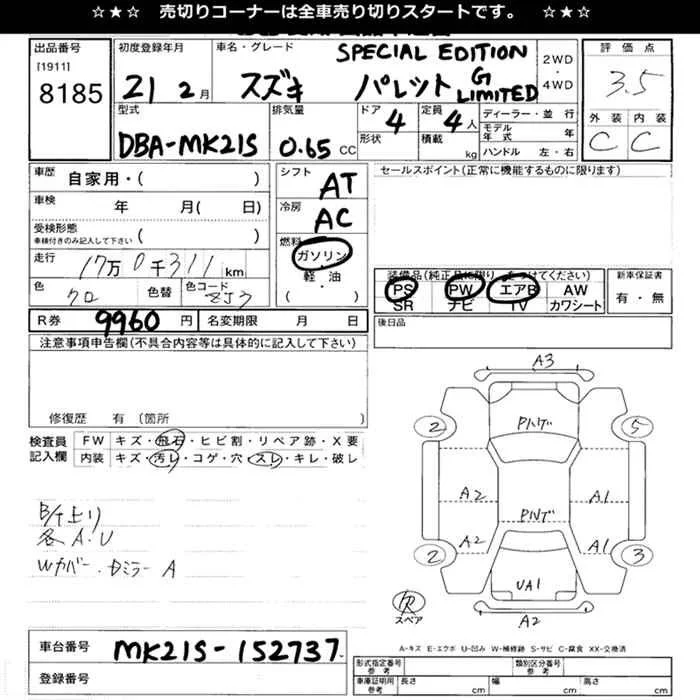 ☆★☆ 売切りコーナーは全車売り切りスタートです。 ☆★☆
出品番号
[1911]
8185
初度登録年月
21 2月
車名・グレード
スズキ パレット SPECIAL EDITION
G LIMITED
2WD
・
4WD
評価点
3.5
外装 内装
C C
型式
DBA-MK21S
排気量
0.65 CC
ドア
4
形状
定員
4人
積載
kg
ディーラー・並行
モデル年式 年
ハンドル 左・右
車歴
自家用・( )
車検
年 月( 日)
受検形態
車検付きのみ記入して下さい ( )
走行
17万0千311km
色
クロ
色替
色コード
ZJ3
R券 9960 円
名変期限 月 日
シフト
AT
冷房
AC
燃料
ガソリン
軽・油
( )
セールスポイント(正常に機能するものに限ります)
PS PW エアB AW
SR ナビ TV カワシート
新車保証書
有・無
後日品
注意事項申告欄(不具合内容等は具体的に記入して下さい)
修復歴 有(箇所
検査員
記入欄
FW キズ・飛石・ヒビ割・リペア跡・X要
内装 キズ・汚レ・コゲ・穴・スレ・キレ・破レ
各A・U
Wカバー・Dミラー A
A3
2 5
A2 A1
A2 A1
2 3
UA1
A2
スペア
A-キズ E-エクボ U-凹み W-補修跡 S-サビ C-腐食 XX-交換済
車台番号
MK21S-152737
登録番号
形式指定番号
参考
類別区分番号
参考
車庫証明用
参考
長さ cm
幅 cm
高さ cm